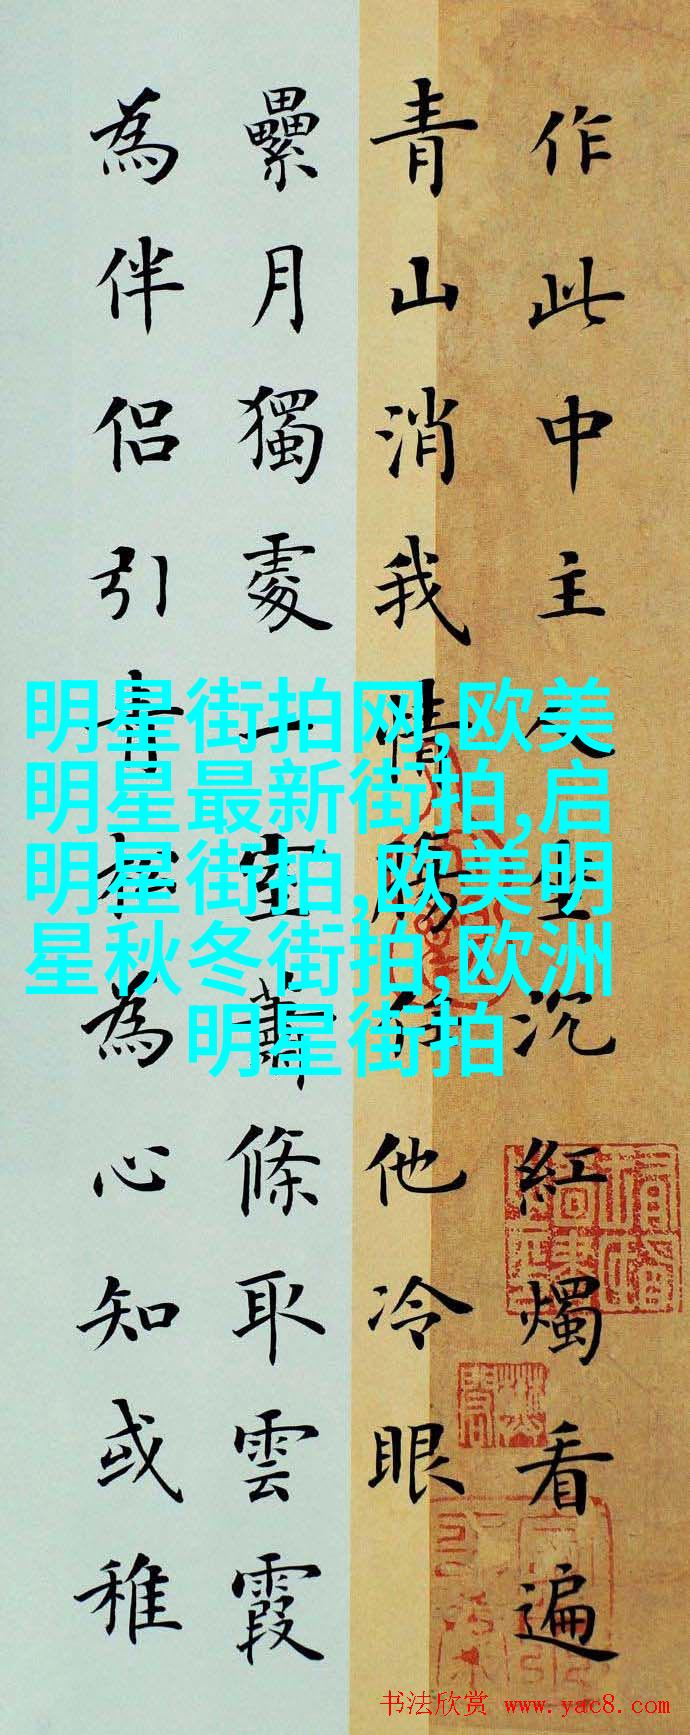 作此中主人坐沉紅燭看遍
青山消我情腸任他冷眼
纍月獨處一室蕭條取雲霞
為伴侶引青松為心知或稚
明星街拍网,欧美
明星最新街拍,启
明星街拍,欧美明
星秋冬街拍,欧洲
明星街拍
书法欣赏 www.yac8.com